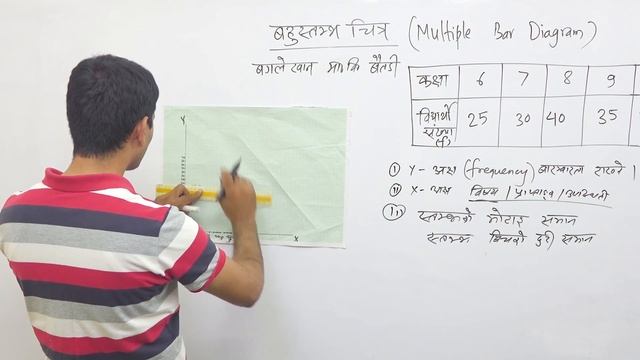 बहुस्तम्भ चित्र (Multiple Bar Diagram)
कक्षा 6 7 8 9
विद्यार्थी संख्या (f) 25 30 40 35
Y
X
(i) Y - अक्ष (frequency) बारम्बारता राख्ने
(ii) X - अक्ष विषय /
(iii) स्तम्भको मोटाइ समान
स्तम्भ बिचको दुरी समान